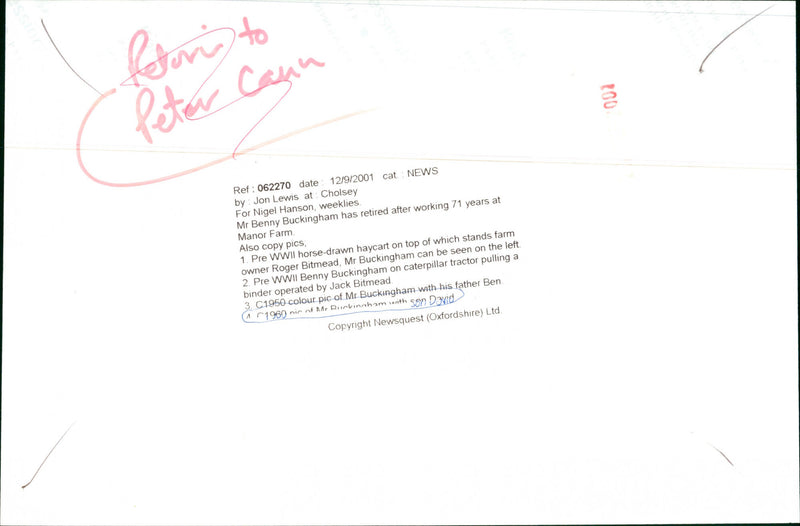 Return to
Peter Cann
002
Ref : 062270 date : 12/9/2001 cat. : NEWS
by : Jon Lewis at : Cholsey
For Nigel Hanson, weeklies.
Mr Benny Buckingham has retired after working 71 years at
Manor Farm.
Also copy pics,
1. Pre WWII horse-drawn haycart on top of which stands farm
owner Roger Bitmead, Mr Buckingham can be seen on the left.
2. Pre WWII Benny Buckingham on caterpillar tractor pulling a
binder operated by Jack Bitmead
3. C1950 colour pic of Mr Buckingham with his father Ben
4. C1960 pic of Mr Buckingham with son David
Copyright Newsquest (Oxfordshire) Ltd.